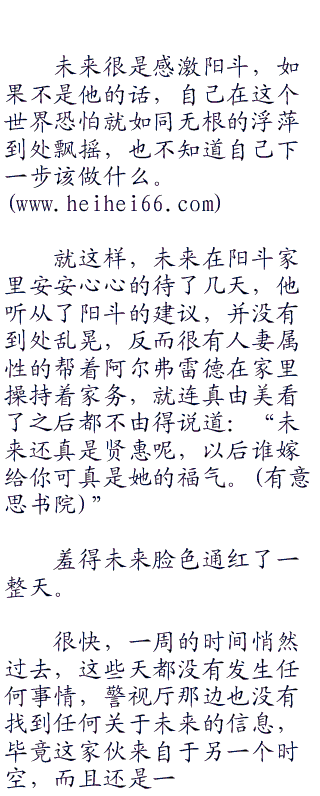 未来很是感激阳斗，如
果不是他的话，自己在这个
世界恐怕就如同无根的浮萍
到处飘摇，也不知道自己下
一步该做什么。
(www.heihei66.com)
就这样，未来在阳斗家
里安安心心的待了几天，他
听从了阳斗的建议，并没有
到处乱晃，反而很有人妻属
性的帮着阿尔弗雷德在家里
操持着家务，就连真由美看
了之后都不由得说道：“未
来还真是贤惠呢，以后谁嫁
给你可真是她的福气。(有意
思书院)”
羞得未来脸色通红了一
整天。
很快，一周的时间悄然
过去，这些天都没有发生任
何事情，警视厅那边也没有
找到任何关于未来的信息，
毕竟这家伙来自于另一个时
空，而且还是一